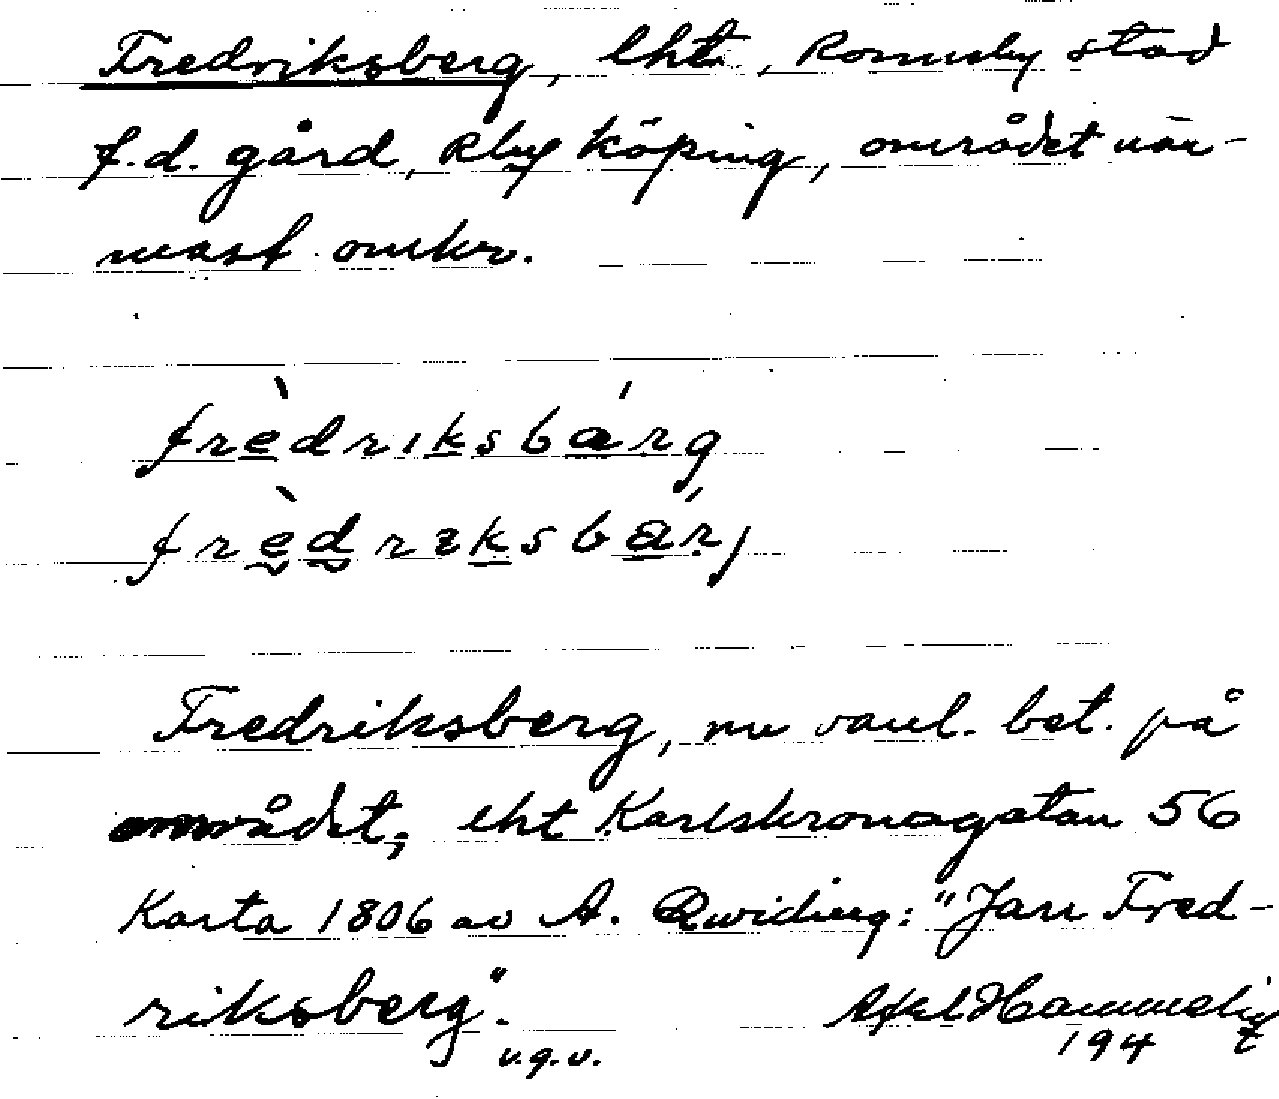 Fredriksberg, lht, Ronneby stad
f.d. gård, Rby köping, området när-
mast omkr.
frèdriksbárg
frèdrɪksbárj
Fredriksberg, nu vanl. bet. på
området, lht Karlskronagatan 56
Karta 1806 av A. Qwiding: "Jan Fred-
riksberg".
Axel Hammelin
v.g.v.
194